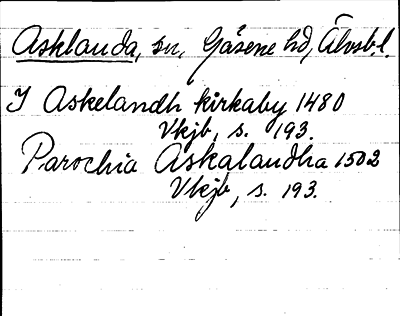 Asklanda, sn, Gäsene hd, Älvsb.l.
I Askelandh kirkaby 1480
Vkjb, s. 193.
Parochia Askalandha 1502
Vkjb, s. 193.